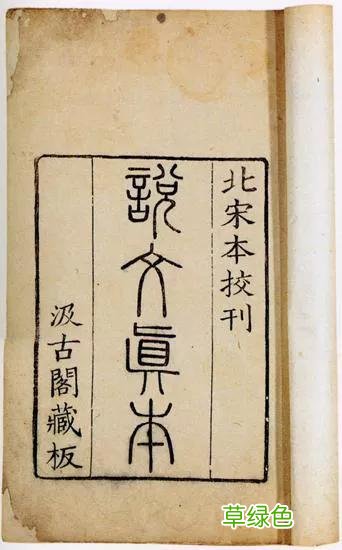 北宋本挍刊
說文眞本
汲古閣藏板
草绿色